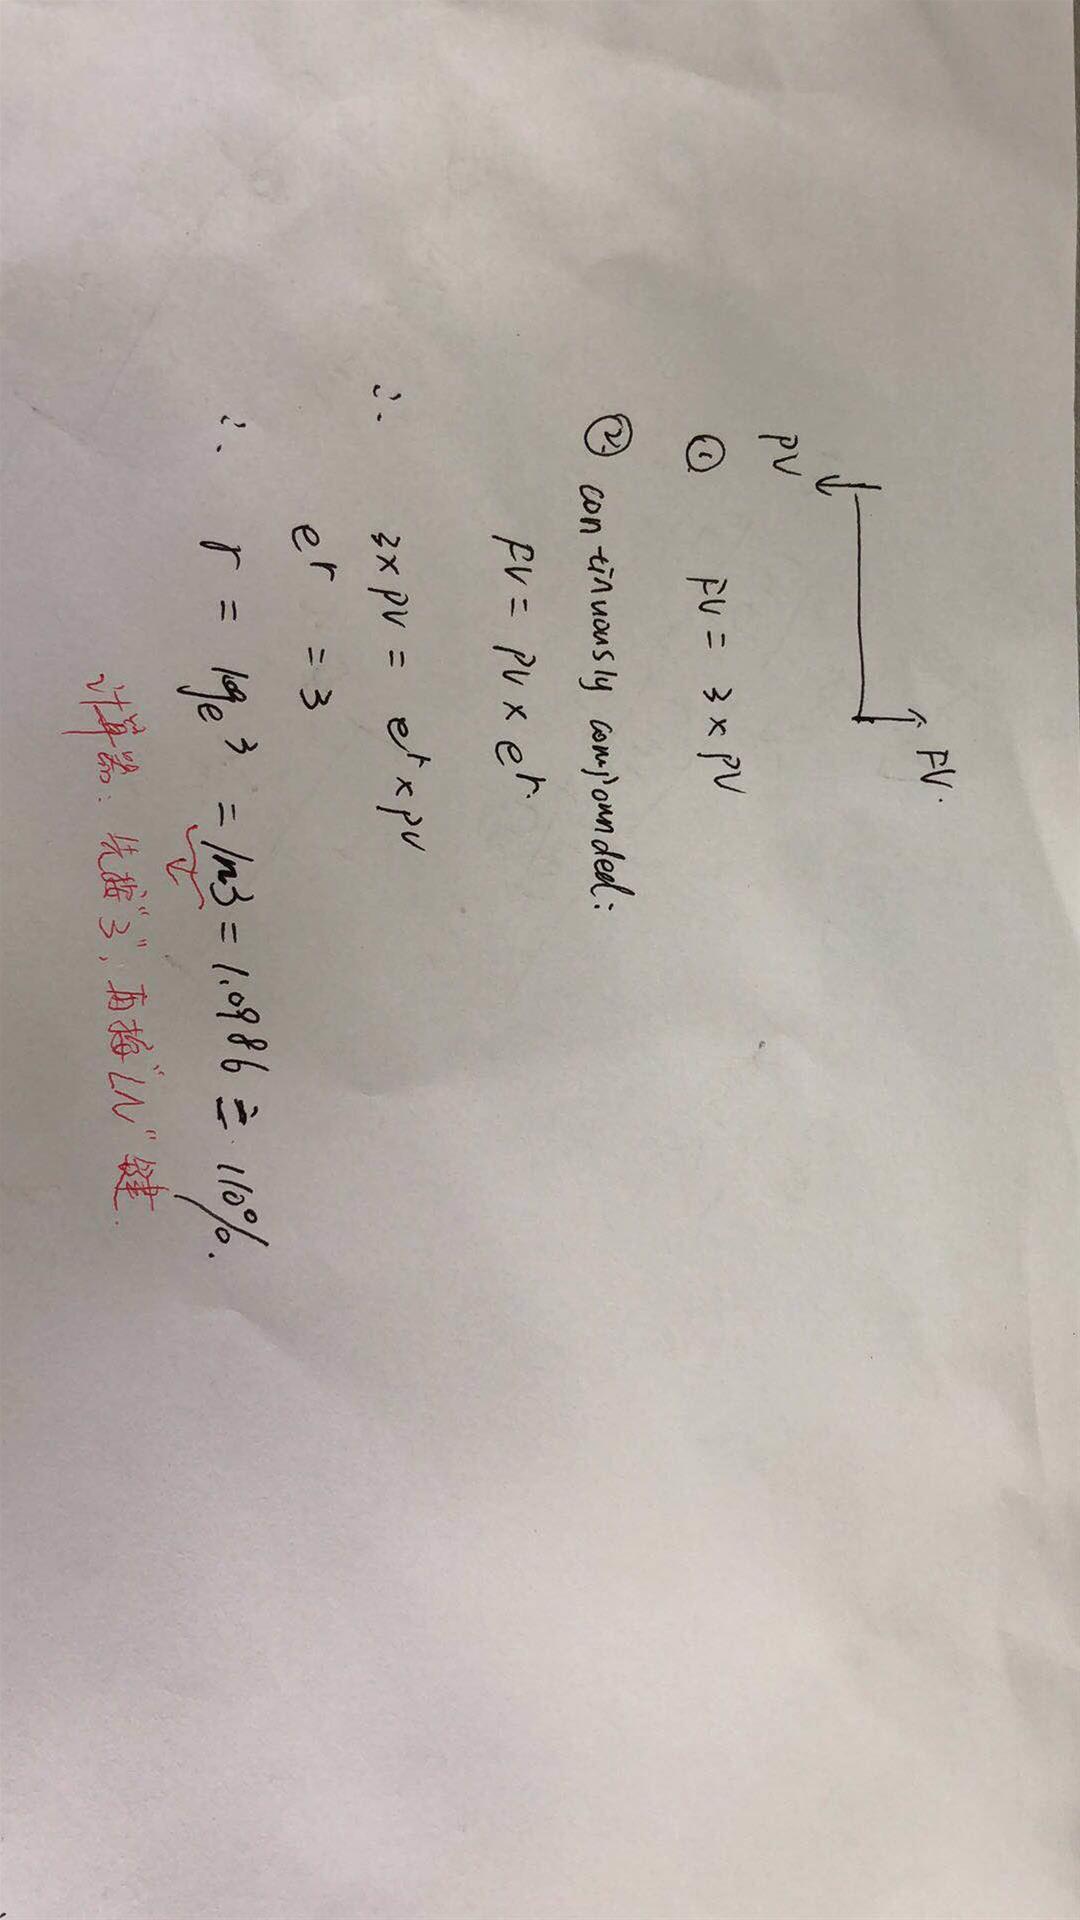 PV FV.
① FV = 3 × PV
② continuously compounded:
FV = PV × eʳ.
∴ 3×PV = eʳ × PV
eʳ = 3
∴ r = logₑ3 = ln3 = 1.0986 ≐ 110%.
计算器: 先按“3”, 再按“LN”键.